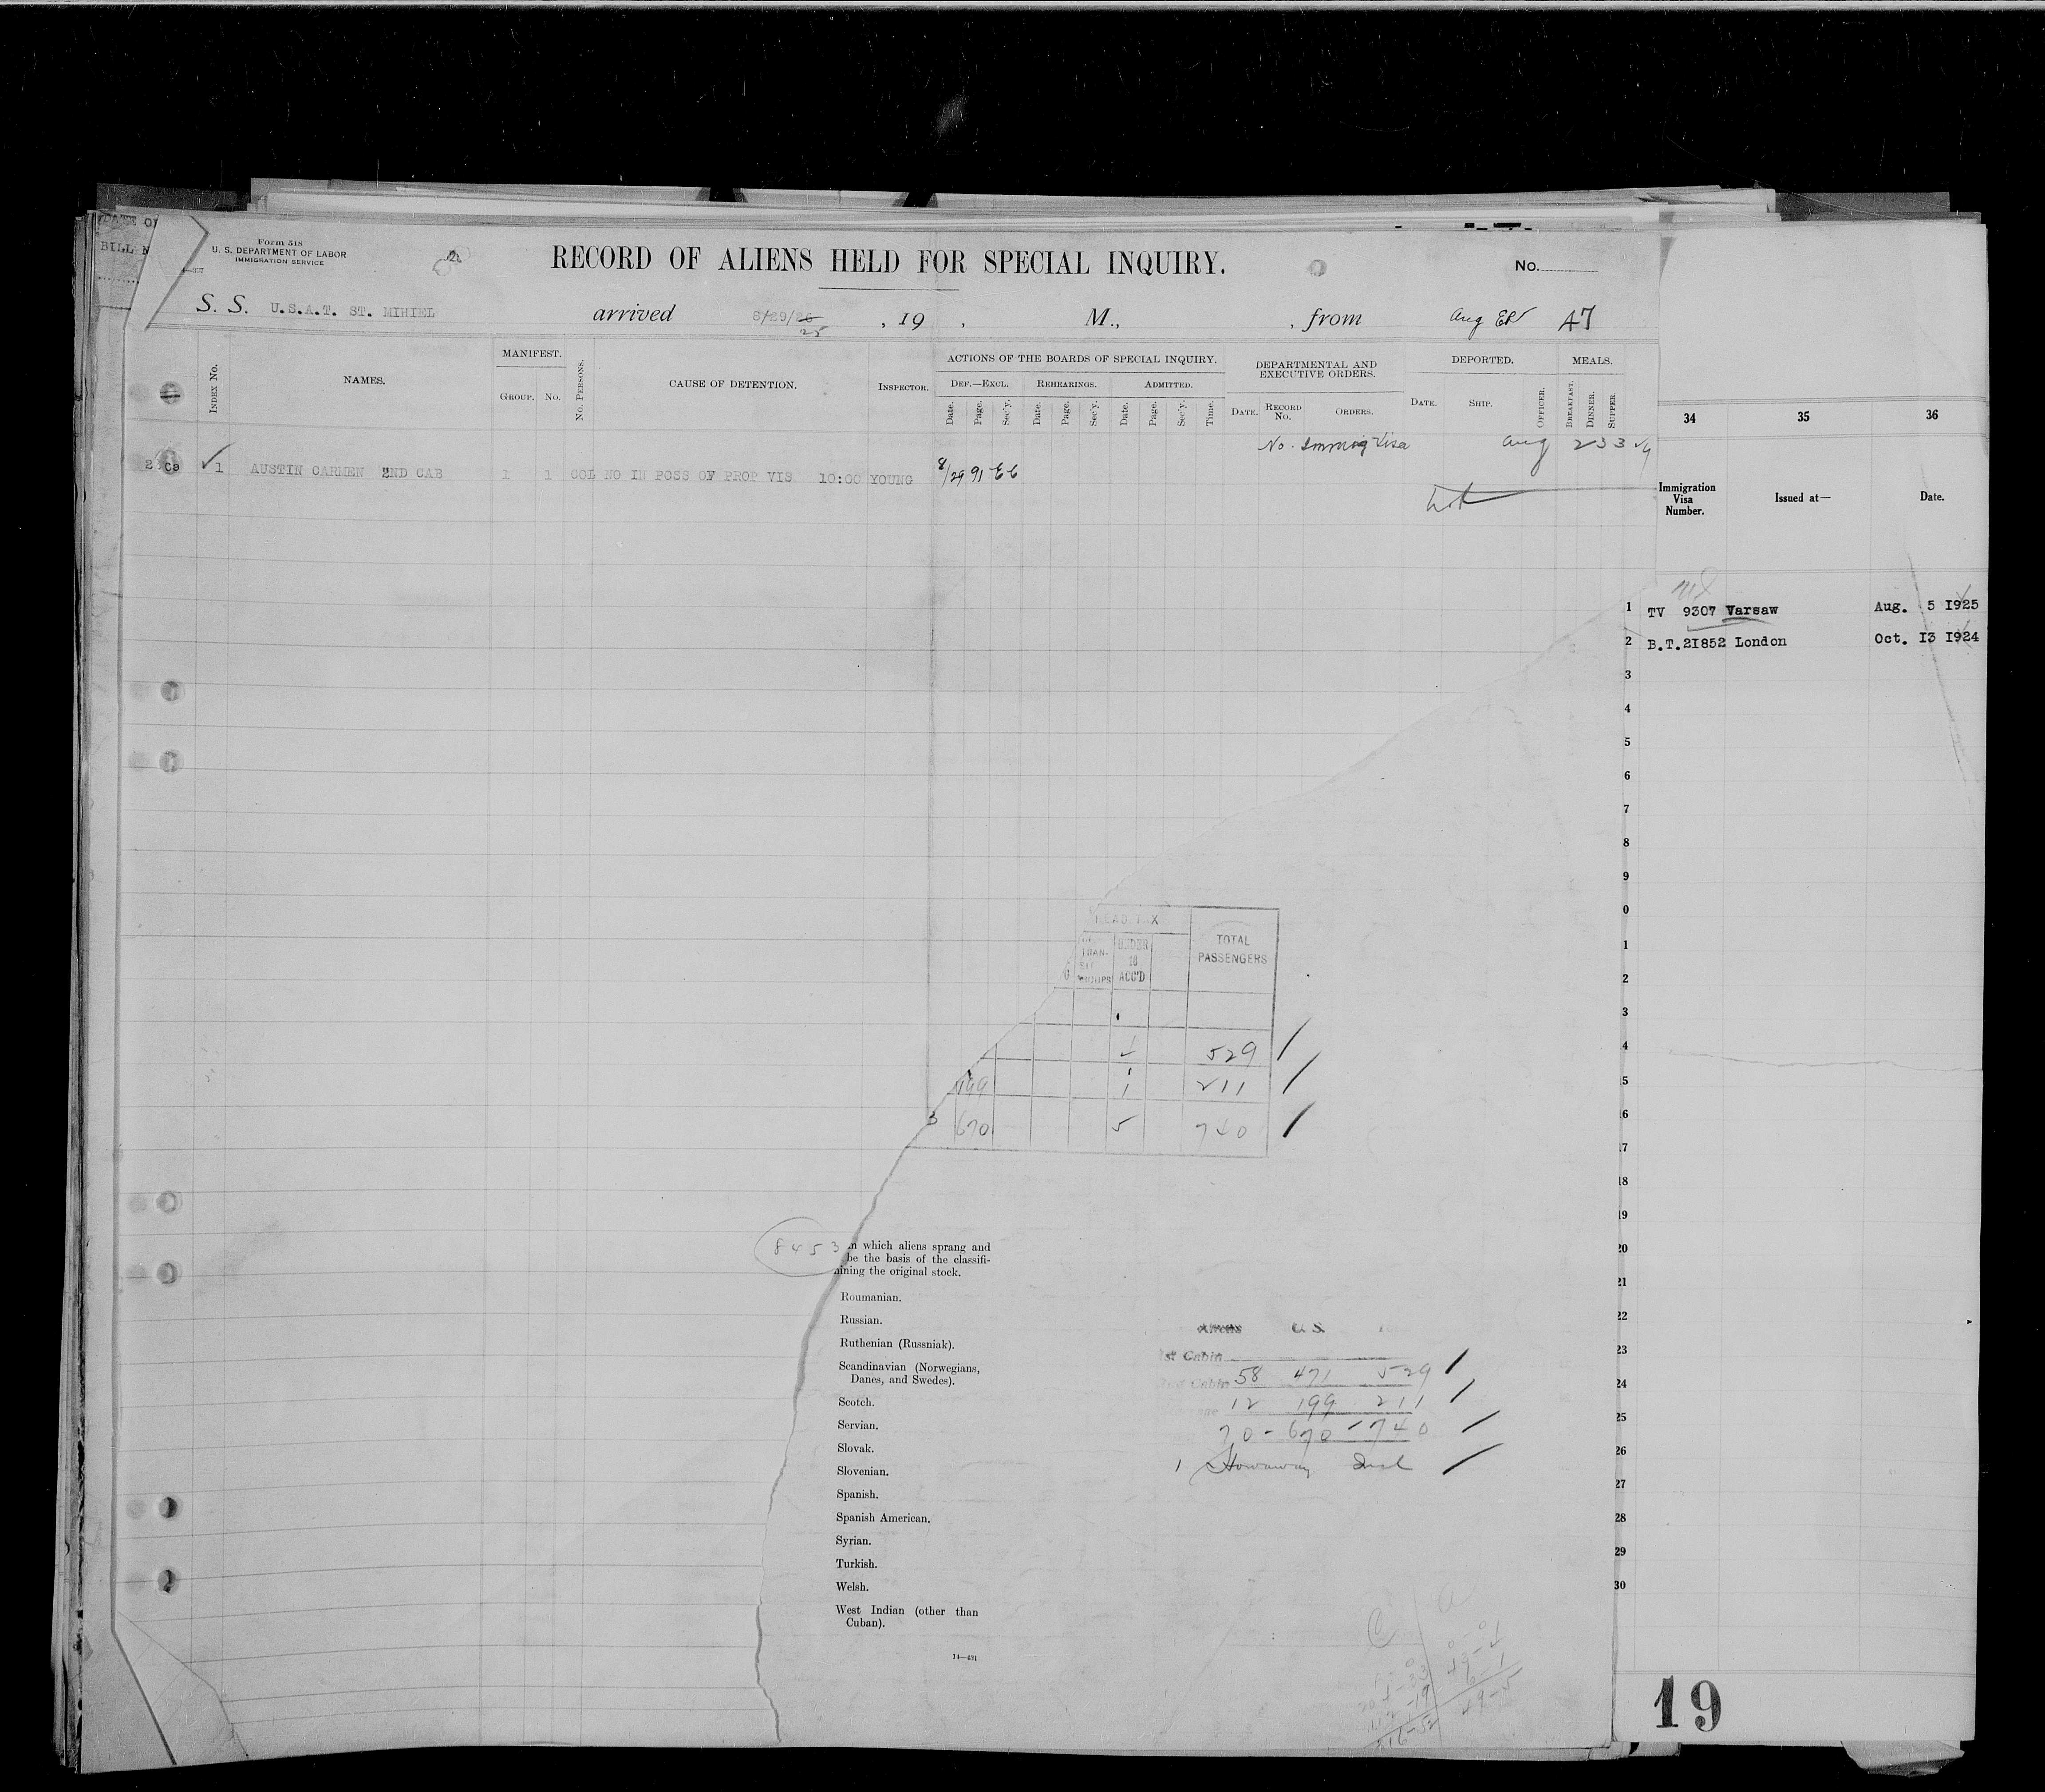 BILL N
Form 518
U. S. DEPARTMENT OF LABOR
IMMIGRATION SERVICE
RECORD OF ALIENS HELD FOR SPECIAL INQUIRY.
No.
S. S. U.S.A.T. ST. MIHIEL arrived 8/29/26 25 , 19 , M., , from Aug
MANIFEST.
ACTIONS OF THE BOARDS OF SPECIAL INQUIRY.
DEPARTMENTAL AND EXECUTIVE ORDERS.
DEPORTED.
MEALS.
Index No.
NAMES.
GROUP. No.
No. PERSONS.
CAUSE OF DETENTION.
INSPECTOR.
DEF.—EXCL. REHEARINGS. ADMITTED.
Date. Page. Sec'y. Date. Page. Sec'y. Date. Page. Sec'y. Time.
DATE. RECORD No. ORDERS.
DATE. SHIP. OFFICER.
BREAKFAST. DINNER. SUPPER.
No. Immig Visa Aug 233
1 AUSTIN CARMEN 2ND CAB 1 1 COL NO IN POSS OF PROP VIS 10:00 YOUNG 8/29 91
34 35 36
Immigration Visa Number. Issued at— Date.
1 TV 9307 Varsaw Aug. 5 1925
2 B.T.21852 London Oct. 13 1924
3
4
5
6
7
8
9
0
1
2
3
4
5
6
7
18
19
20
21
22
23
24
25
26
27
28
29
30
HEAD TAX
TRAN-
SIT
UNDER
16
ACC'D
TOTAL
PASSENGERS
529
199 1 211
3 670 5 740
8453
n which aliens sprang and
be the basis of the classifi-
ining the original stock.
Roumanian.
Russian.
Ruthenian (Russniak).
Scandinavian (Norwegians,
Danes, and Swedes).
Scotch.
Servian.
Slovak.
Slovenian.
Spanish.
Spanish American.
Syrian.
Turkish.
Welsh.
West Indian (other than
Cuban).
14—431
Aliens U.S.
1st Cabin
2nd Cabin 58 471 529
12 199 211
70 - 670 - 740
1 Stowaway Incl
19